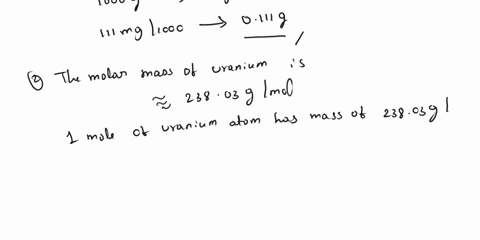 111 mg / 1000 → 0.111 g
② The molar mass of uranium is
≈ 238.03 g / mol
1 mole of uranium atom has mass of 238.03 g /